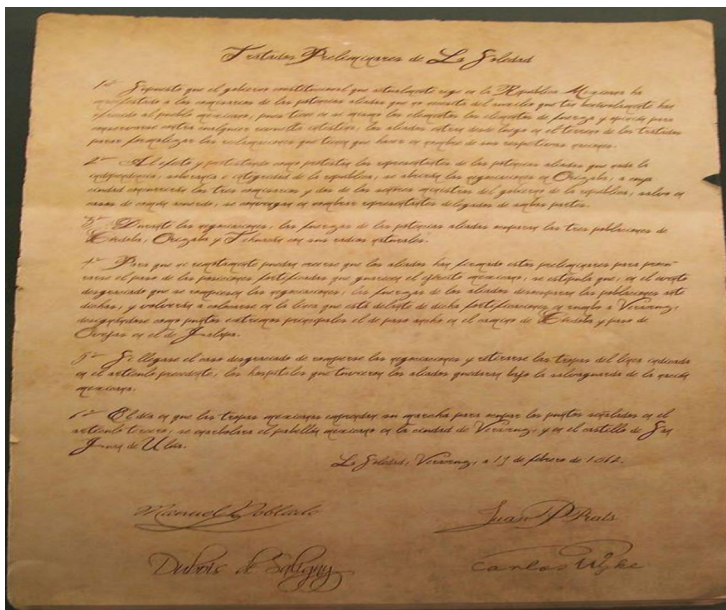 Tratados Preliminares de La Soledad
1º Supuesto que el gobierno constitucional que actualmente rige en la República Mexicana ha
manifestado a los comisarios de las potencias aliadas que no necesita del auxilio que tan benévolamente han
ofrecido al pueblo mexicano, pues tiene en sí mismo los elementos los elementos de fuerza y opinión para
conservarse contra cualquier revuelta intestina; los aliados entran desde luego en el terreno de los tratados
para formalizar las reclamaciones que tienen que hacer en nombre de sus respectivas naciones.
2º Al efecto y protestando como protestan los representantes de las potencias aliadas que nada la
independencia, soberanía e integridad de la república, se abrirán las negociaciones en Orizaba, a cuya
ciudad concurrirán los tres comisarios y dos de los señores ministros del gobierno de la república, salvo en
caso de común acuerdo, se convengan en nombrar representantes delegados de ambas partes.
3º Durante las negociaciones, las fuerzas de las potencias aliadas ocuparan las tres poblaciones de
Córdoba, Orizaba y Tehuacán con sus radios naturales.
4º Para que ni remotamente pueda creerse que los aliados han firmado estos preliminares para
el paso de las posiciones fortificadas que guarnece el ejército mexicano, se estipula que, en el evento
desgraciado que se rompiesen las negociaciones, las fuerzas de los aliados desocuparan las poblaciones
dichas, y volverán a colocarse en la línea que está delante de dichas fortificaciones en rumbo a Veracruz;
designándose como puntos extremos principales el de paso ancho en el camino de Córdoba y paso de
Ovejas en el de Jalapa.
5º Si llegase el caso desgraciado de romperse las negociaciones y retirarse las tropas del línea indicada
en el artículo precedente, los hospitales que tuvieren los aliados quedaran bajo la salvaguarda de la nación
mexicana.
6º El día en que las tropas mexicanas emprendan su marcha para ocupar los puntos señalados en el
artículo tercero, se enarbolara el pabellón mexicano en la ciudad de Veracruz, y en el castillo de San
Juan de Ulúa.
La Soledad, Veracruz, a 19 de febrero de 1862.
Manuel Doblado
Juan P Prats
Dubois de Saligny
Carlos Wyke